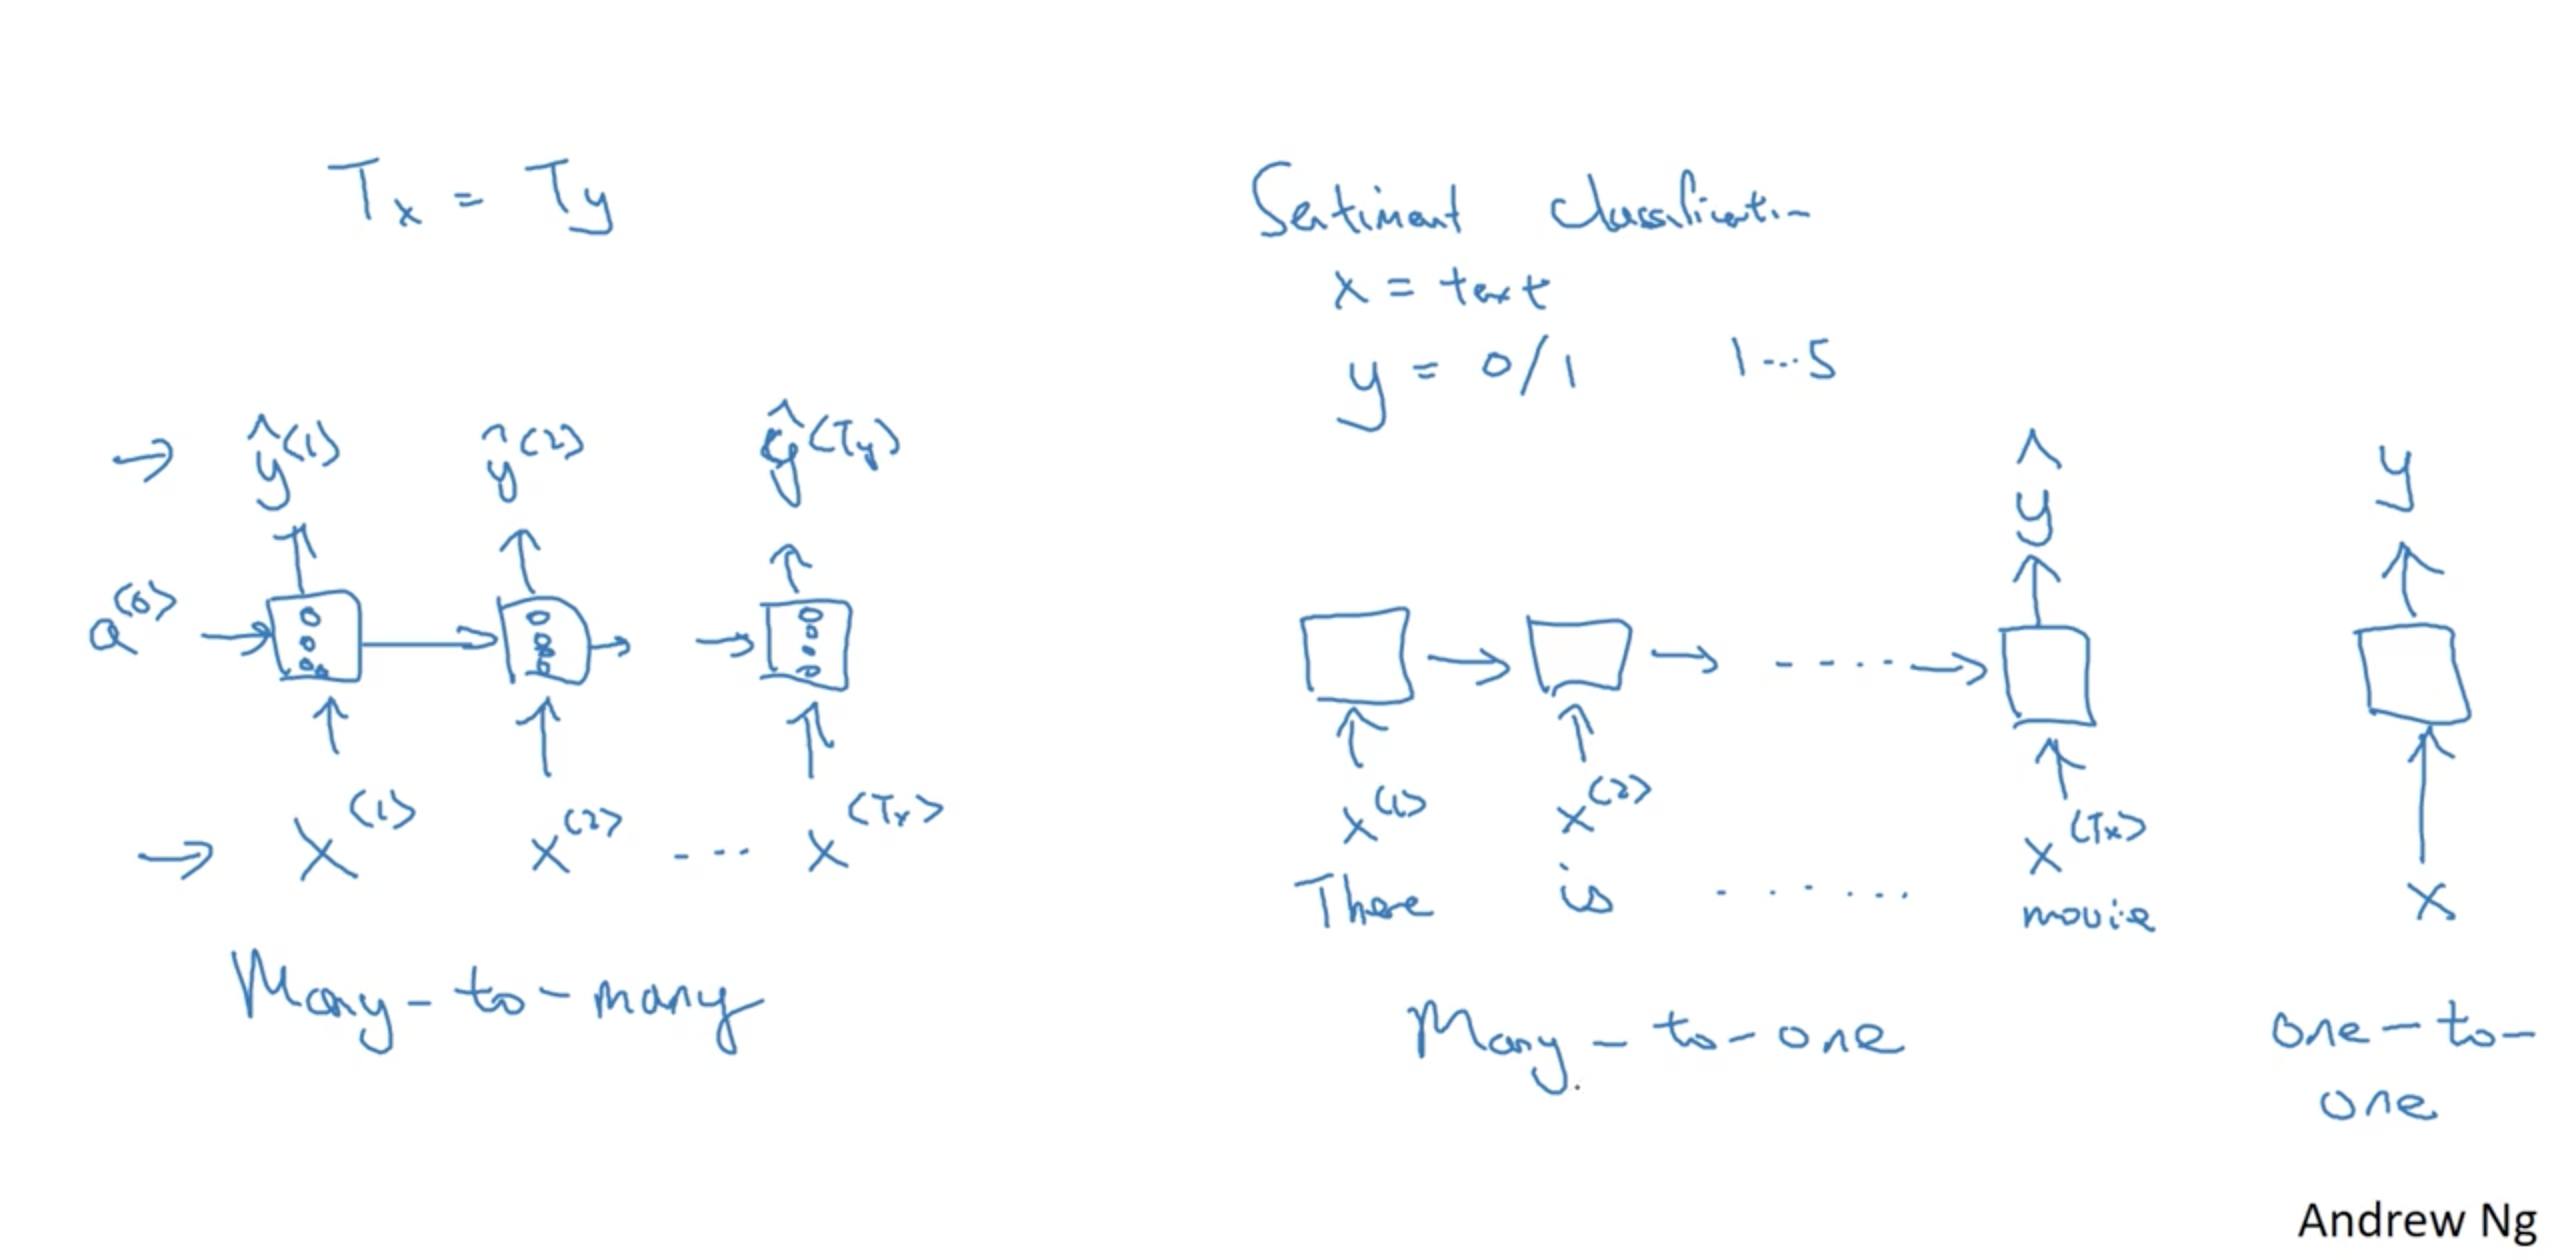 Tx = Ty
ŷ<1> ŷ<2> ŷ<Ty>
a<0>
x<1> x<2> --- x<Tx>
Many-to-many
Sentiment classification
x = text
y = 0/1 1...5
ŷ
x<1> x<2> x<Tx>
There is ...... movie
Many-to-one
y
x
one-to-
one
Andrew Ng